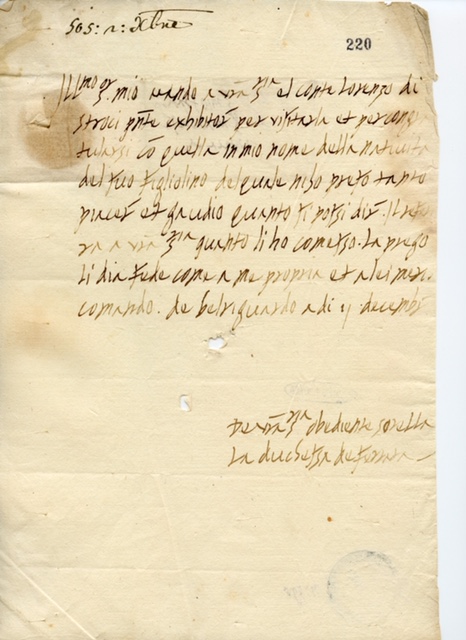 505: 2: Xbre
220
Ill.mo S.r mio mando a vra S.ria el conte Lorenzo di
Stroci pnte exhibitor per visitarla et per congra
tularsi cō quella in mio nome della natività
del suo figliolino del quale ni ho preso tanto
piacer et gaudio quanto si possi dir. Il refe
rira a vra S.ria quanto li ho comesso. La prego
li dia fede come a me propria et a lei me
comando. de belriguardo a di ij decembr
De vra S.ria obediente sorella
La duchessa de ferrara